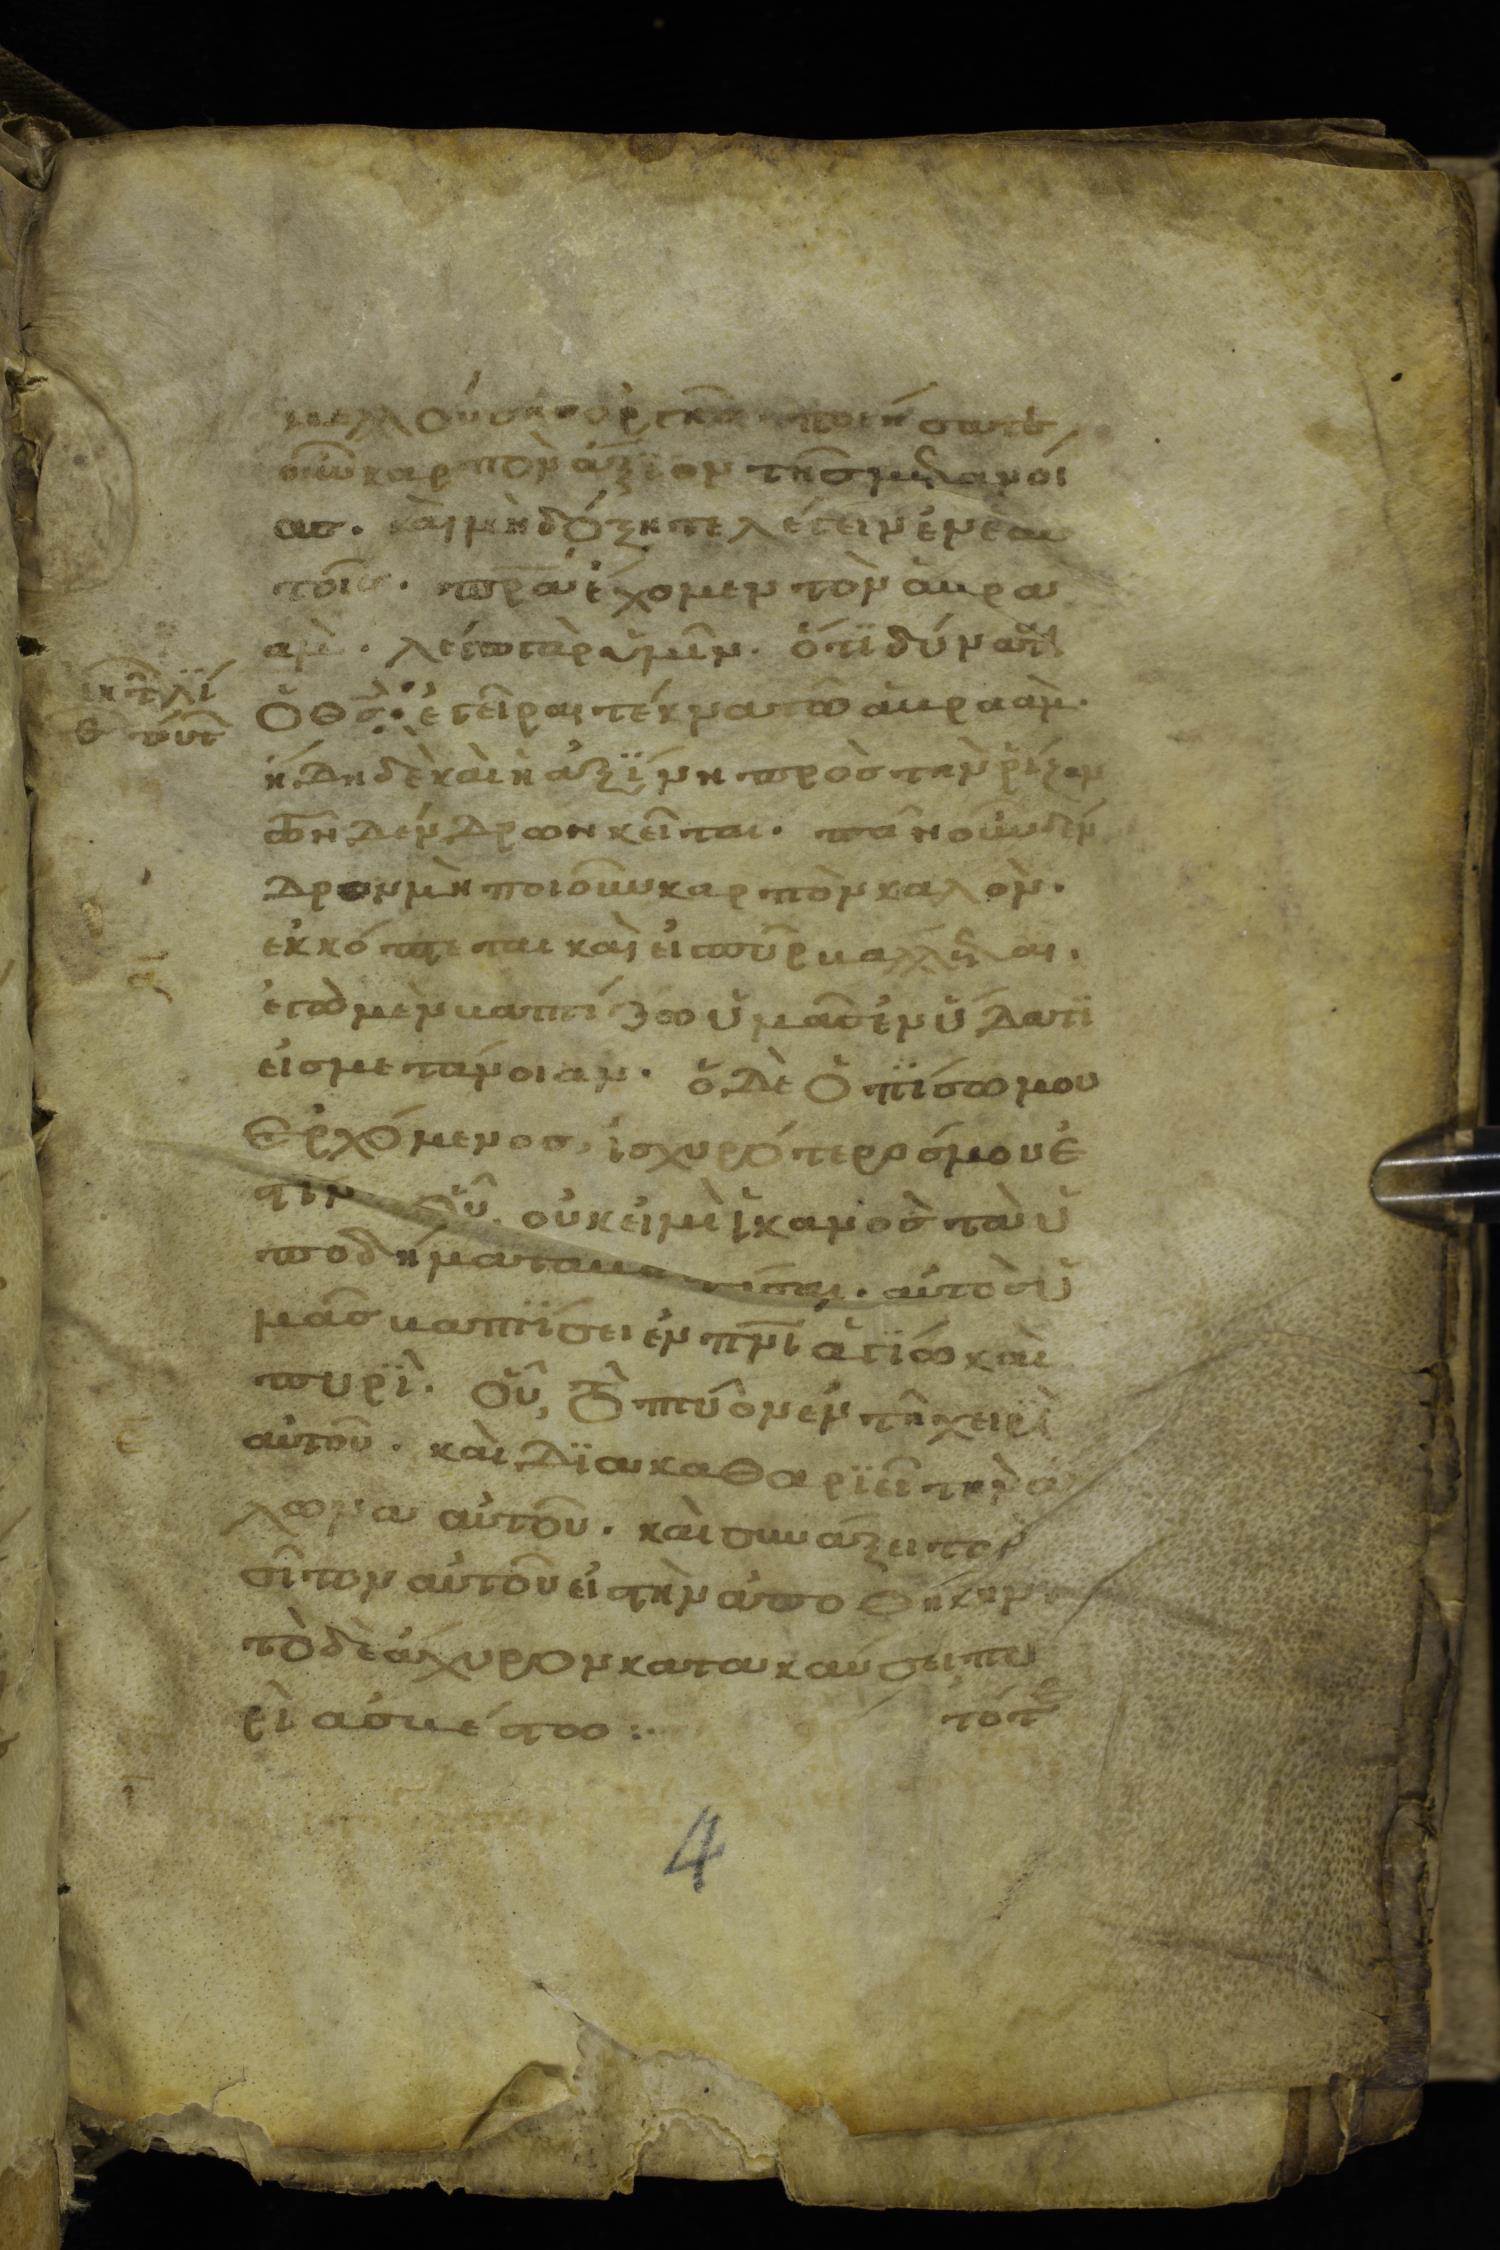 μελλούσης ὀργῆς. ποιήσατε
οὖν καρπὸν ἄξιον τῆς μετανοί
ας. καὶ μὴ δόξητε λέγειν ἐν ἑαυ
τοῖς. πρα ἔχομεν τὸν ἀβρα
ὰμ. λέγω γὰρ ὑμῖν. ὅτι δύναται
ὁ θς ἐκ τῶν λί
θων τούτων
ἐγεῖραι τέκνα τῶ ἀβραὰμ.
ἤδη δὲ καὶ ἡ ἀξίνη πρὸς τὴν ρίζαν
τῶν δένδρων κεῖται. πᾶν οὖν δέν
δρον μὴ ποιοῦν καρπὸν καλὸν.
ἐκκόπτεται καὶ εἰ πῦρ βάλλεται.
ἐγὼ μὲν βαπτίζω ὑμᾶς ἐν ὕδατϊ
εἰς μετάνοιαν. ὁ δὲ ὀπϊσω μου
ἐρχόμενος, ἰσχυρότερός μου ἐ
στιν οὗ, οὐκ εἰμὶ ἱκανὸς τὰ ὑ
ποδήματα βαστάσαι. αὐτὸς ὑ
μᾶς βαπτϊσει ἐν πνϊ ἁγϊω καὶ
πυρϊ. οὗ, τὸ πτύον ἐν τῆ χειρϊ
αὐτοῦ. καὶ δϊακαθαρϊεῖ τὴν ἅ
λωνα αὐτοῦ. καὶ συνάξει τὸν
σῖτον αὐτοῦ εἰ στὴν ἀποθήκην
τὸ δὲ ἄχυρον κατακαύσει πυ
ρὶ ἀσβέστω: τότε
4